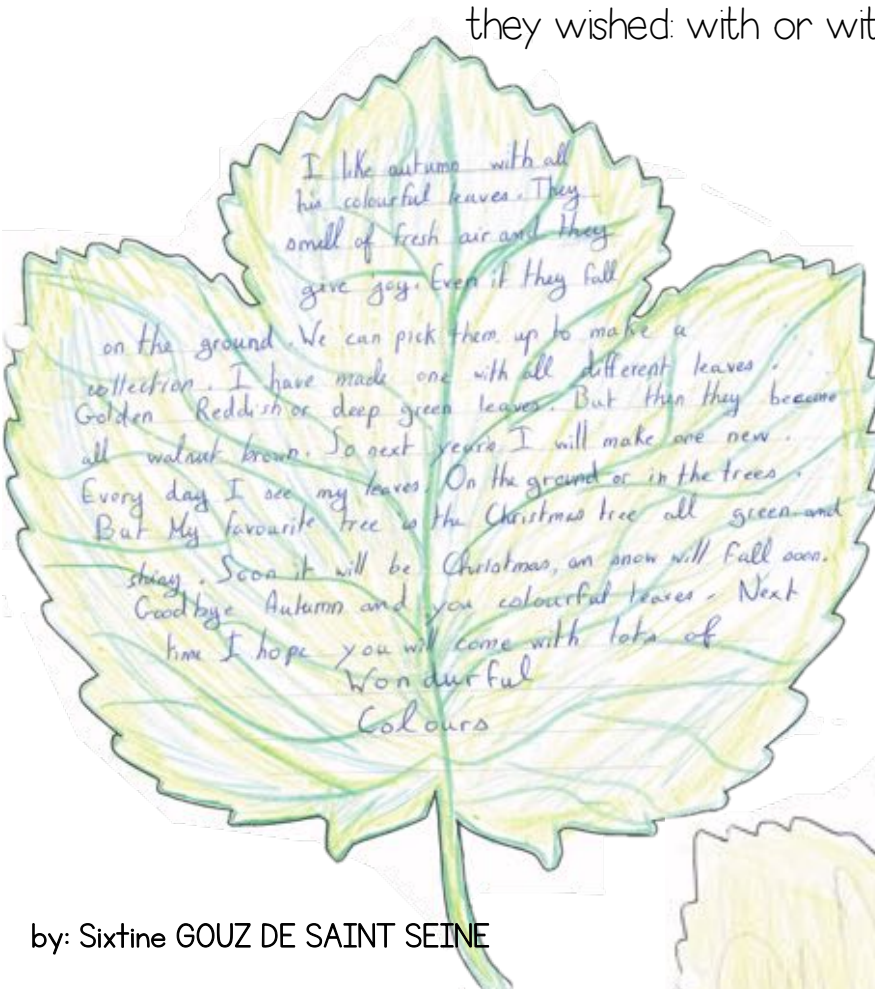 they wished: with or wit
I like autumn with all
his colourful leaves. They
smell of fresh air and they
give joy. Even if they fall
on the ground. We can pick them up to make a
collection. I have made one with all different leaves.
Golden Reddish or deep green leaves. But then they become
all walnut brown. So next years I will make one new.
Every day I see my leaves. On the ground or in the trees.
But My favourite tree is the Christmas tree all green and
shiny. Soon it will be Christmas, an snow will fall soon.
Goodbye Autumn and you colourful leaves. Next
time I hope you will come with lots of
Wondurful
Colours
by: Sixtine GOUZ DE SAINT SEINE